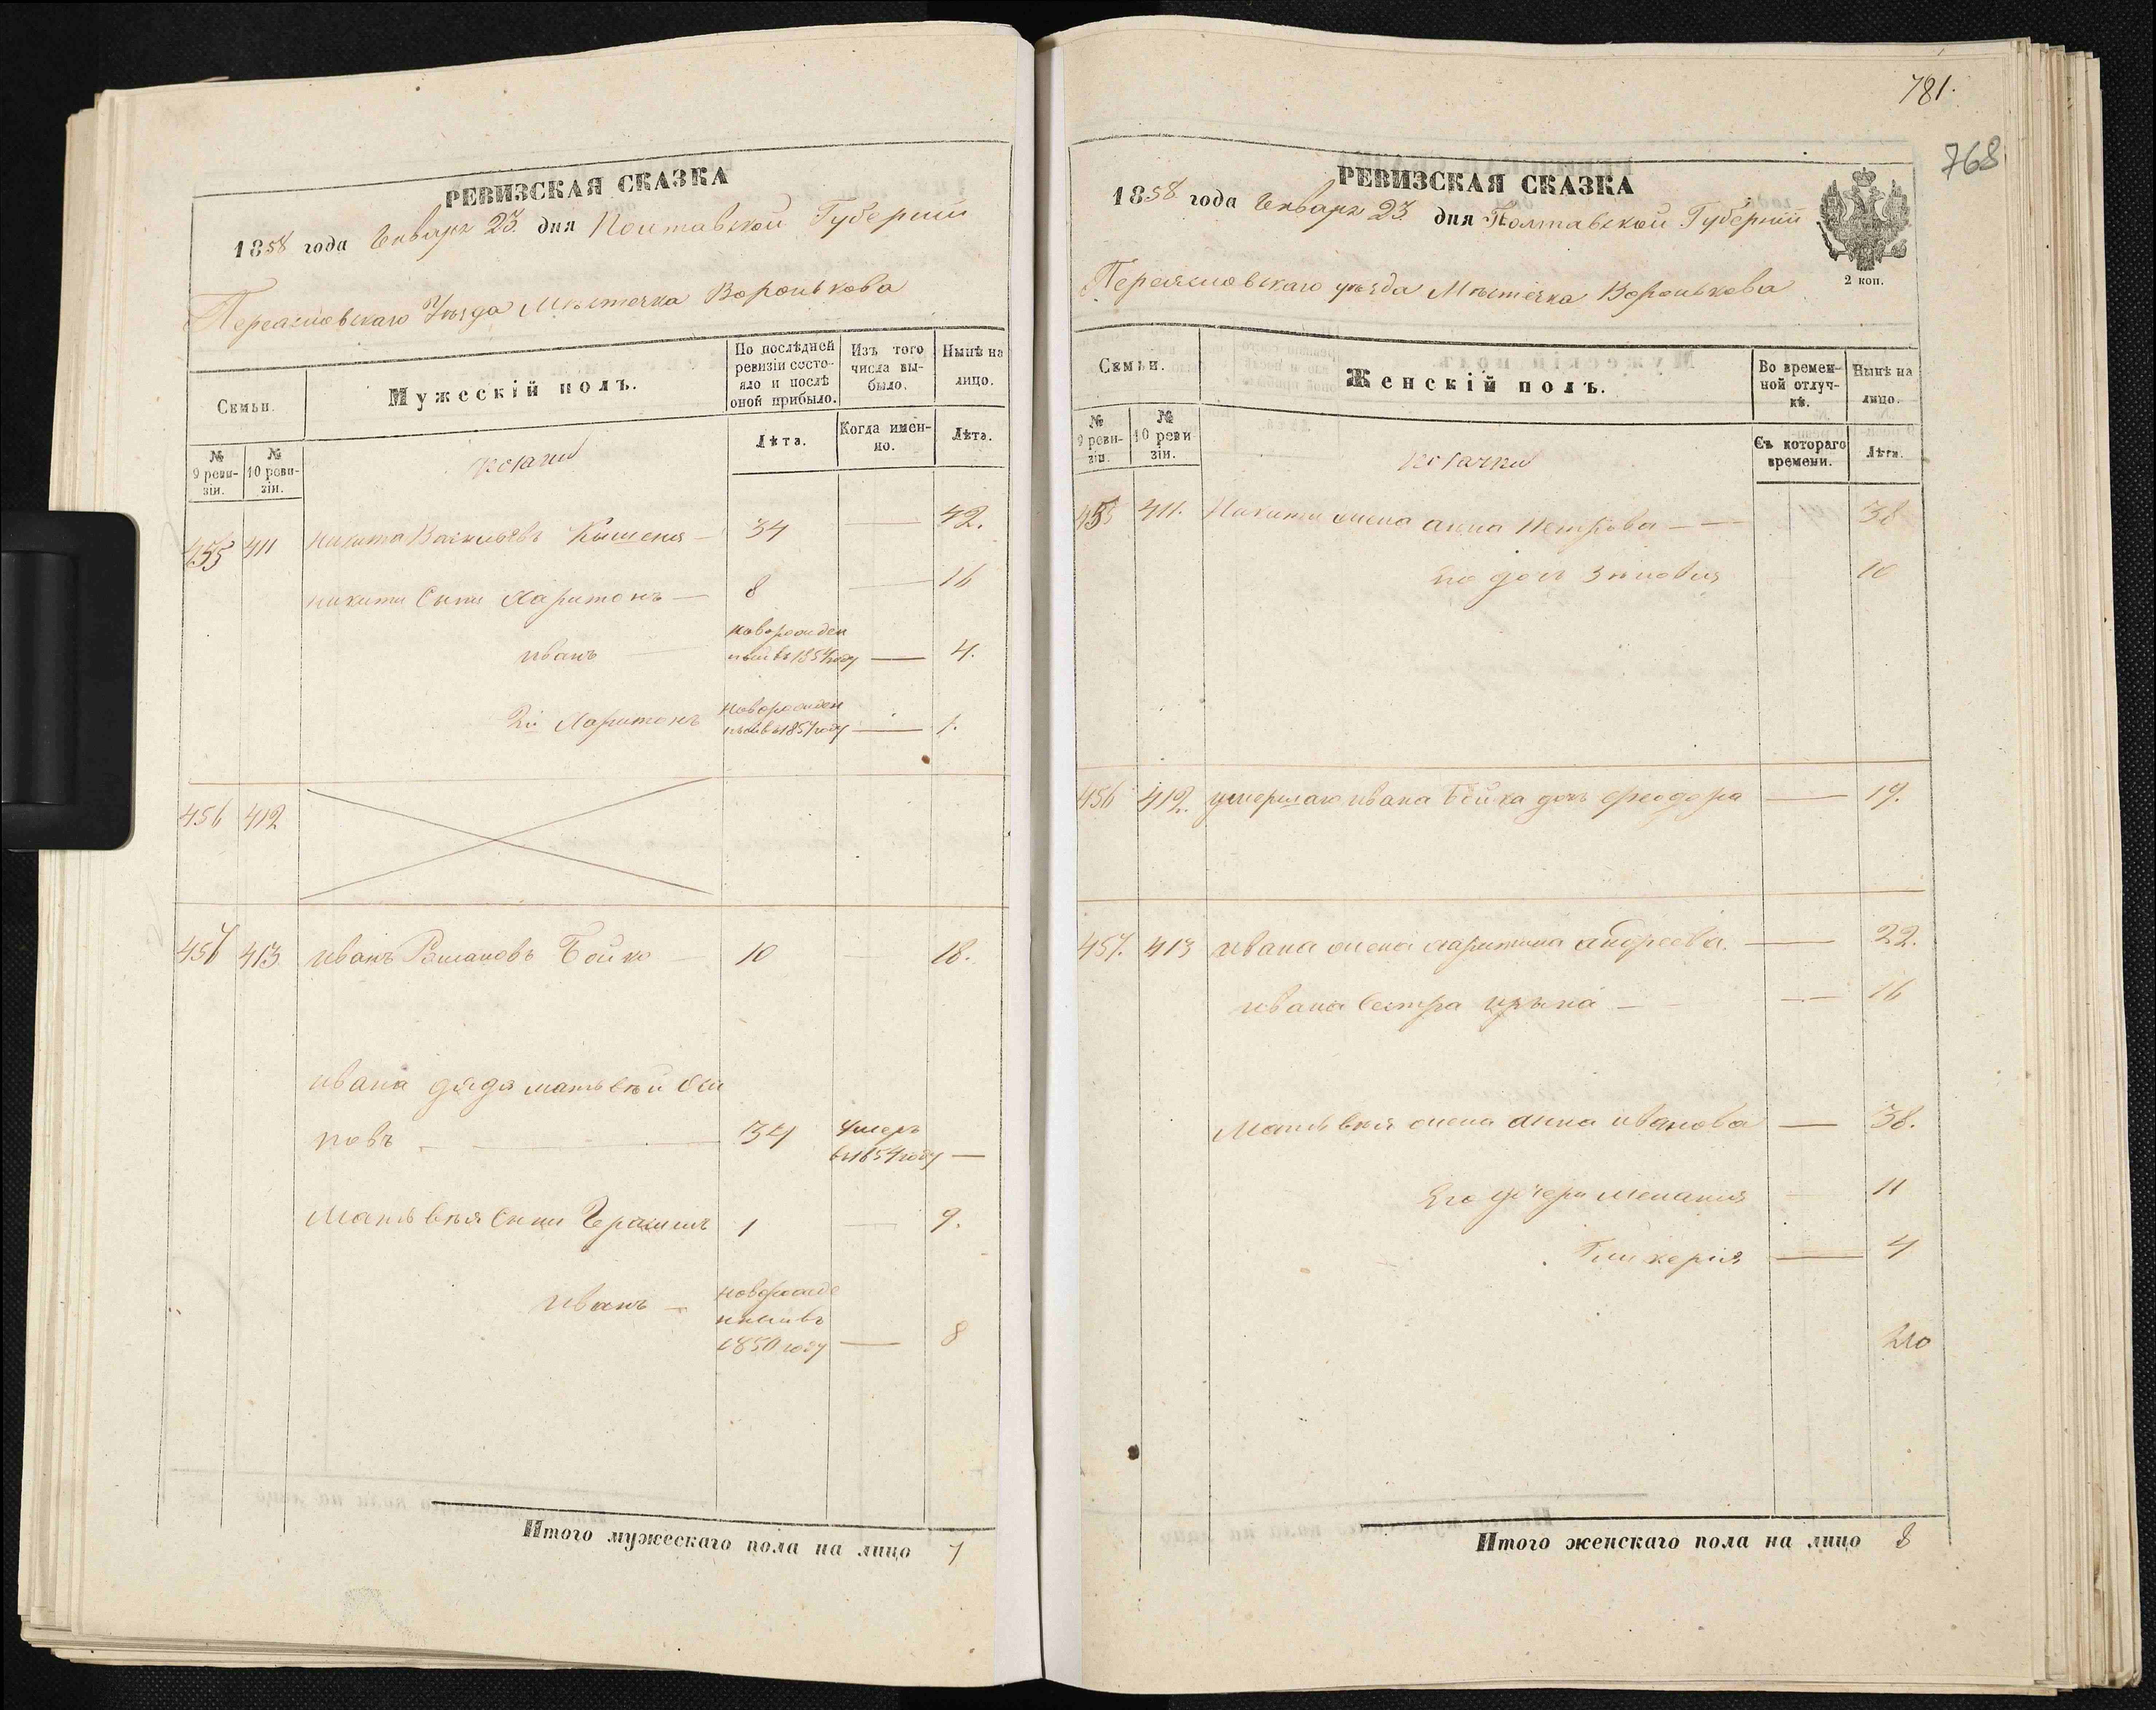 РЕВИЗСКАЯ СКАЗКА
1858 года Генваря 23 дня Полтавской Губернии
Переяславскаго Уѣзда Мѣстечка Воронькова
Семьи.
Мужескій полъ.
По послѣдней ревизіи состояло и послѣ оной прибыло.
Изъ того числа выбыло.
Нынѣ на лицо.
№ 9 ревизіи.
№ 10 ревизіи.
козаки
Лѣта.
Когда именно.
Лѣта.
455 411 Никита Васильевъ Кишеня — 34 — 42.
Никити Сыни Харитонъ — 8 — 16
Иванъ — новорожден
ный въ 1854 году — 4.
2й Харитонъ новорожден
ный въ 1857 году — 1.
456 412
457 413 Иванъ Романовъ Бойко 10 — 18.
Ивана дядя Матьвѣй Оси
повъ — 34 Умеръ
въ 1854 году —
Матьвѣя Сыни Герасимъ 1 — 9.
Иванъ — новорожде
нный въ
1850 году — 8
Итого мужескаго пола на лицо 7
781.
768
РЕВИЗСКАЯ СКАЗКА
1858 года Генваря 23 дня Полтавской Губернии
2 коп.
Переяславскаго уѣзда Мѣстечка Воронькова
Семьи.
Женскій полъ.
Во временной отлучкѣ.
Нынѣ на лицо.
№ 9 ревизіи.
№ 10 ревизіи.
козачки
Съ котораго времени.
Лѣта.
455 411. Никити жена Анна Петрова — 38
Его дочь Зиновия 10
456 412. умершаго Ивана Бойка дочь Феодора — 19.
457. 413 Ивана жена Харитина Андреева. — 22.
Ивана Сестра Ирына — 16
Матьвѣя жена Анна Иванова — 38.
Его дочери Мелания 11
Гликерія — 4
Итого женскаго пола на лицо 8